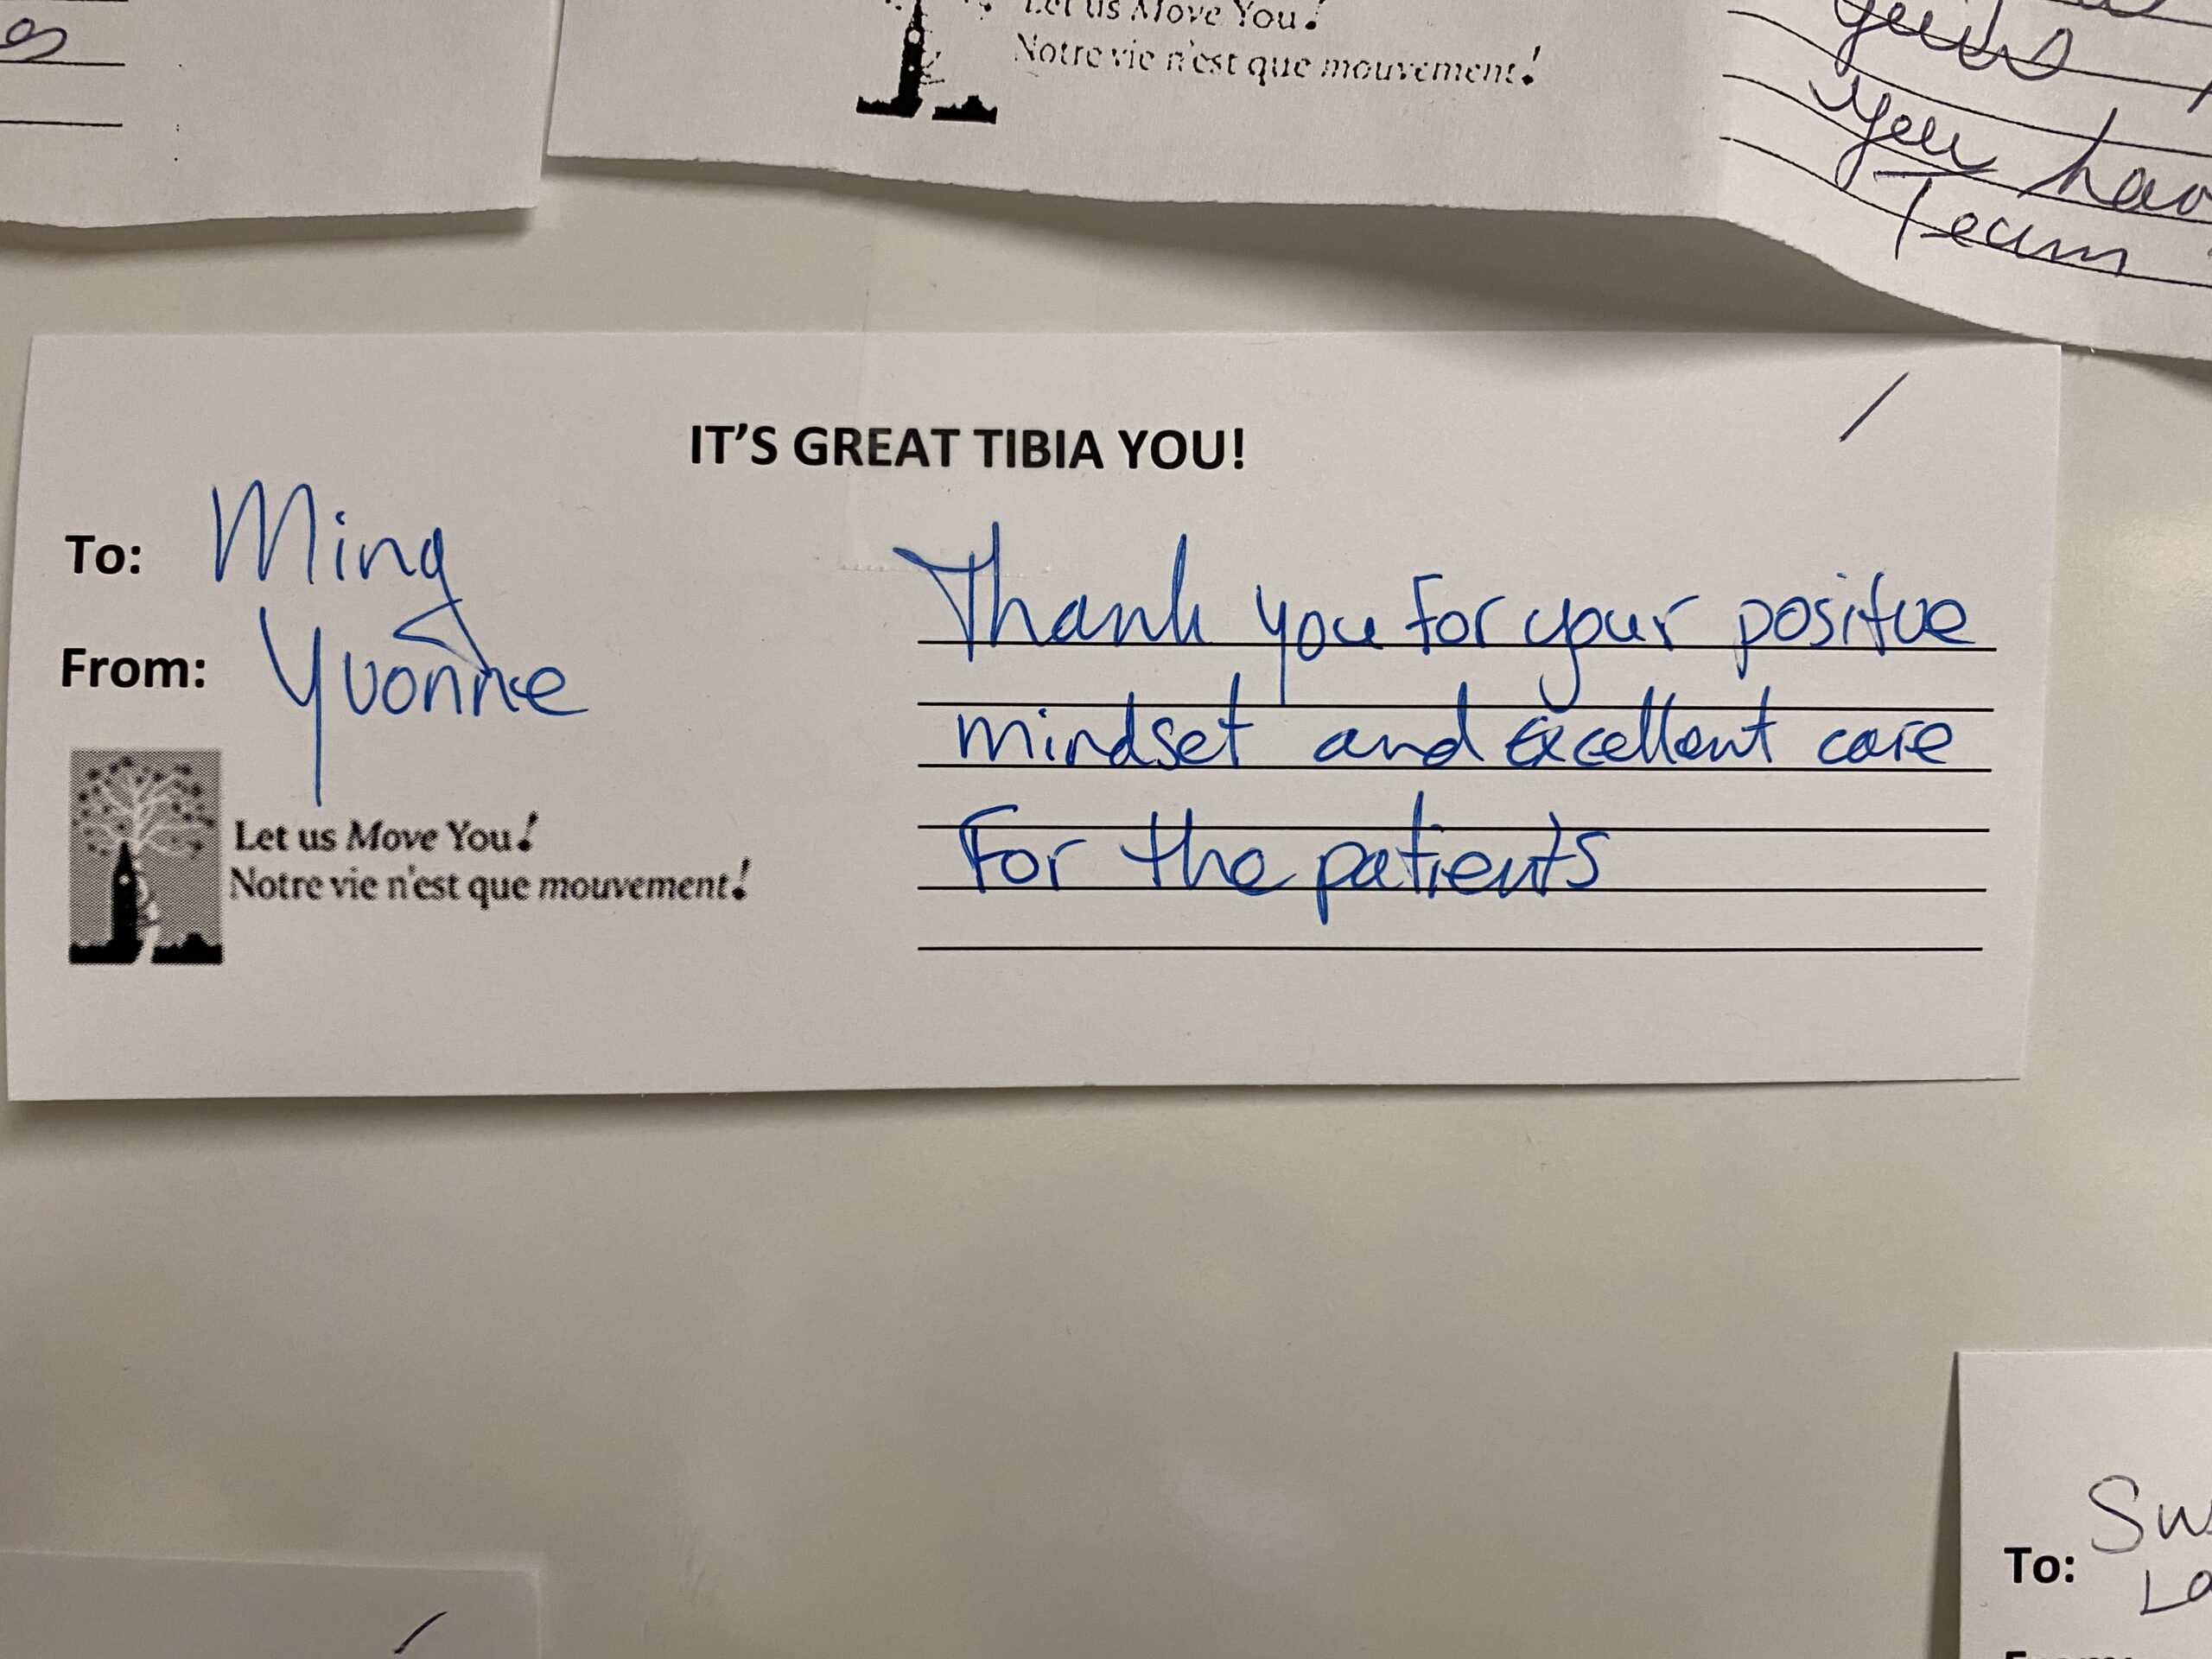 Let us Move You!
Notre vie n'est que mouvement!
you hav
Team
IT'S GREAT TIBIA YOU!
To: Ming
From: Yvonne
Thank you for your positve
mindset and excellent care
For the patients
Let us Move You!
Notre vie n'est que mouvement!
To: